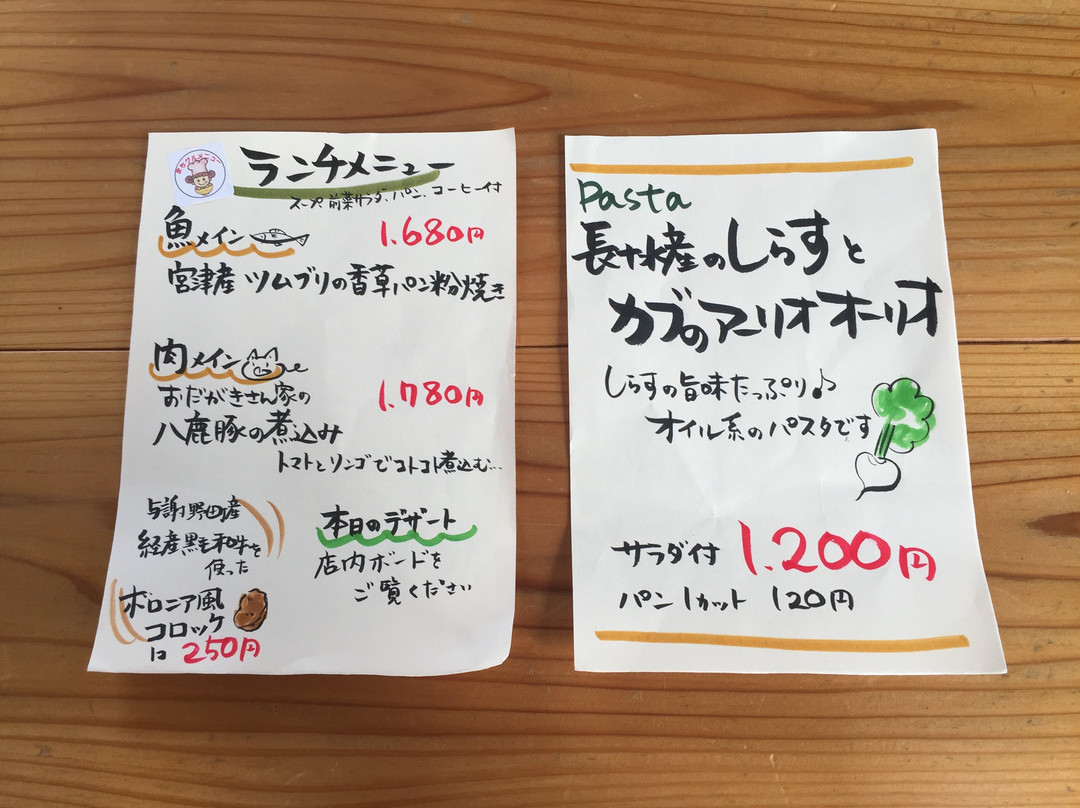 まちグルメニュー
ランチメニュー
スープ、前菜サラダ、パン、コーヒー付
魚メイン
1.680円
宮津産 ツムブリの香草パン粉焼き
肉メイン
おだがきさん家の
1.780円
八鹿豚の煮込み
トマトとリンゴでコトコト煮込む…
与謝野町産
経産黒毛和牛を
使った
ボロニア風
コロッケ
は 250円
本日のデザート
店内ボードを
ご覧ください
Pasta
産のしらすと
カブのアーリオオーリオ
しらすの旨味たっぷり♪
オイル系のパスタです
サラダ付 1.200円
パン1カット 120円